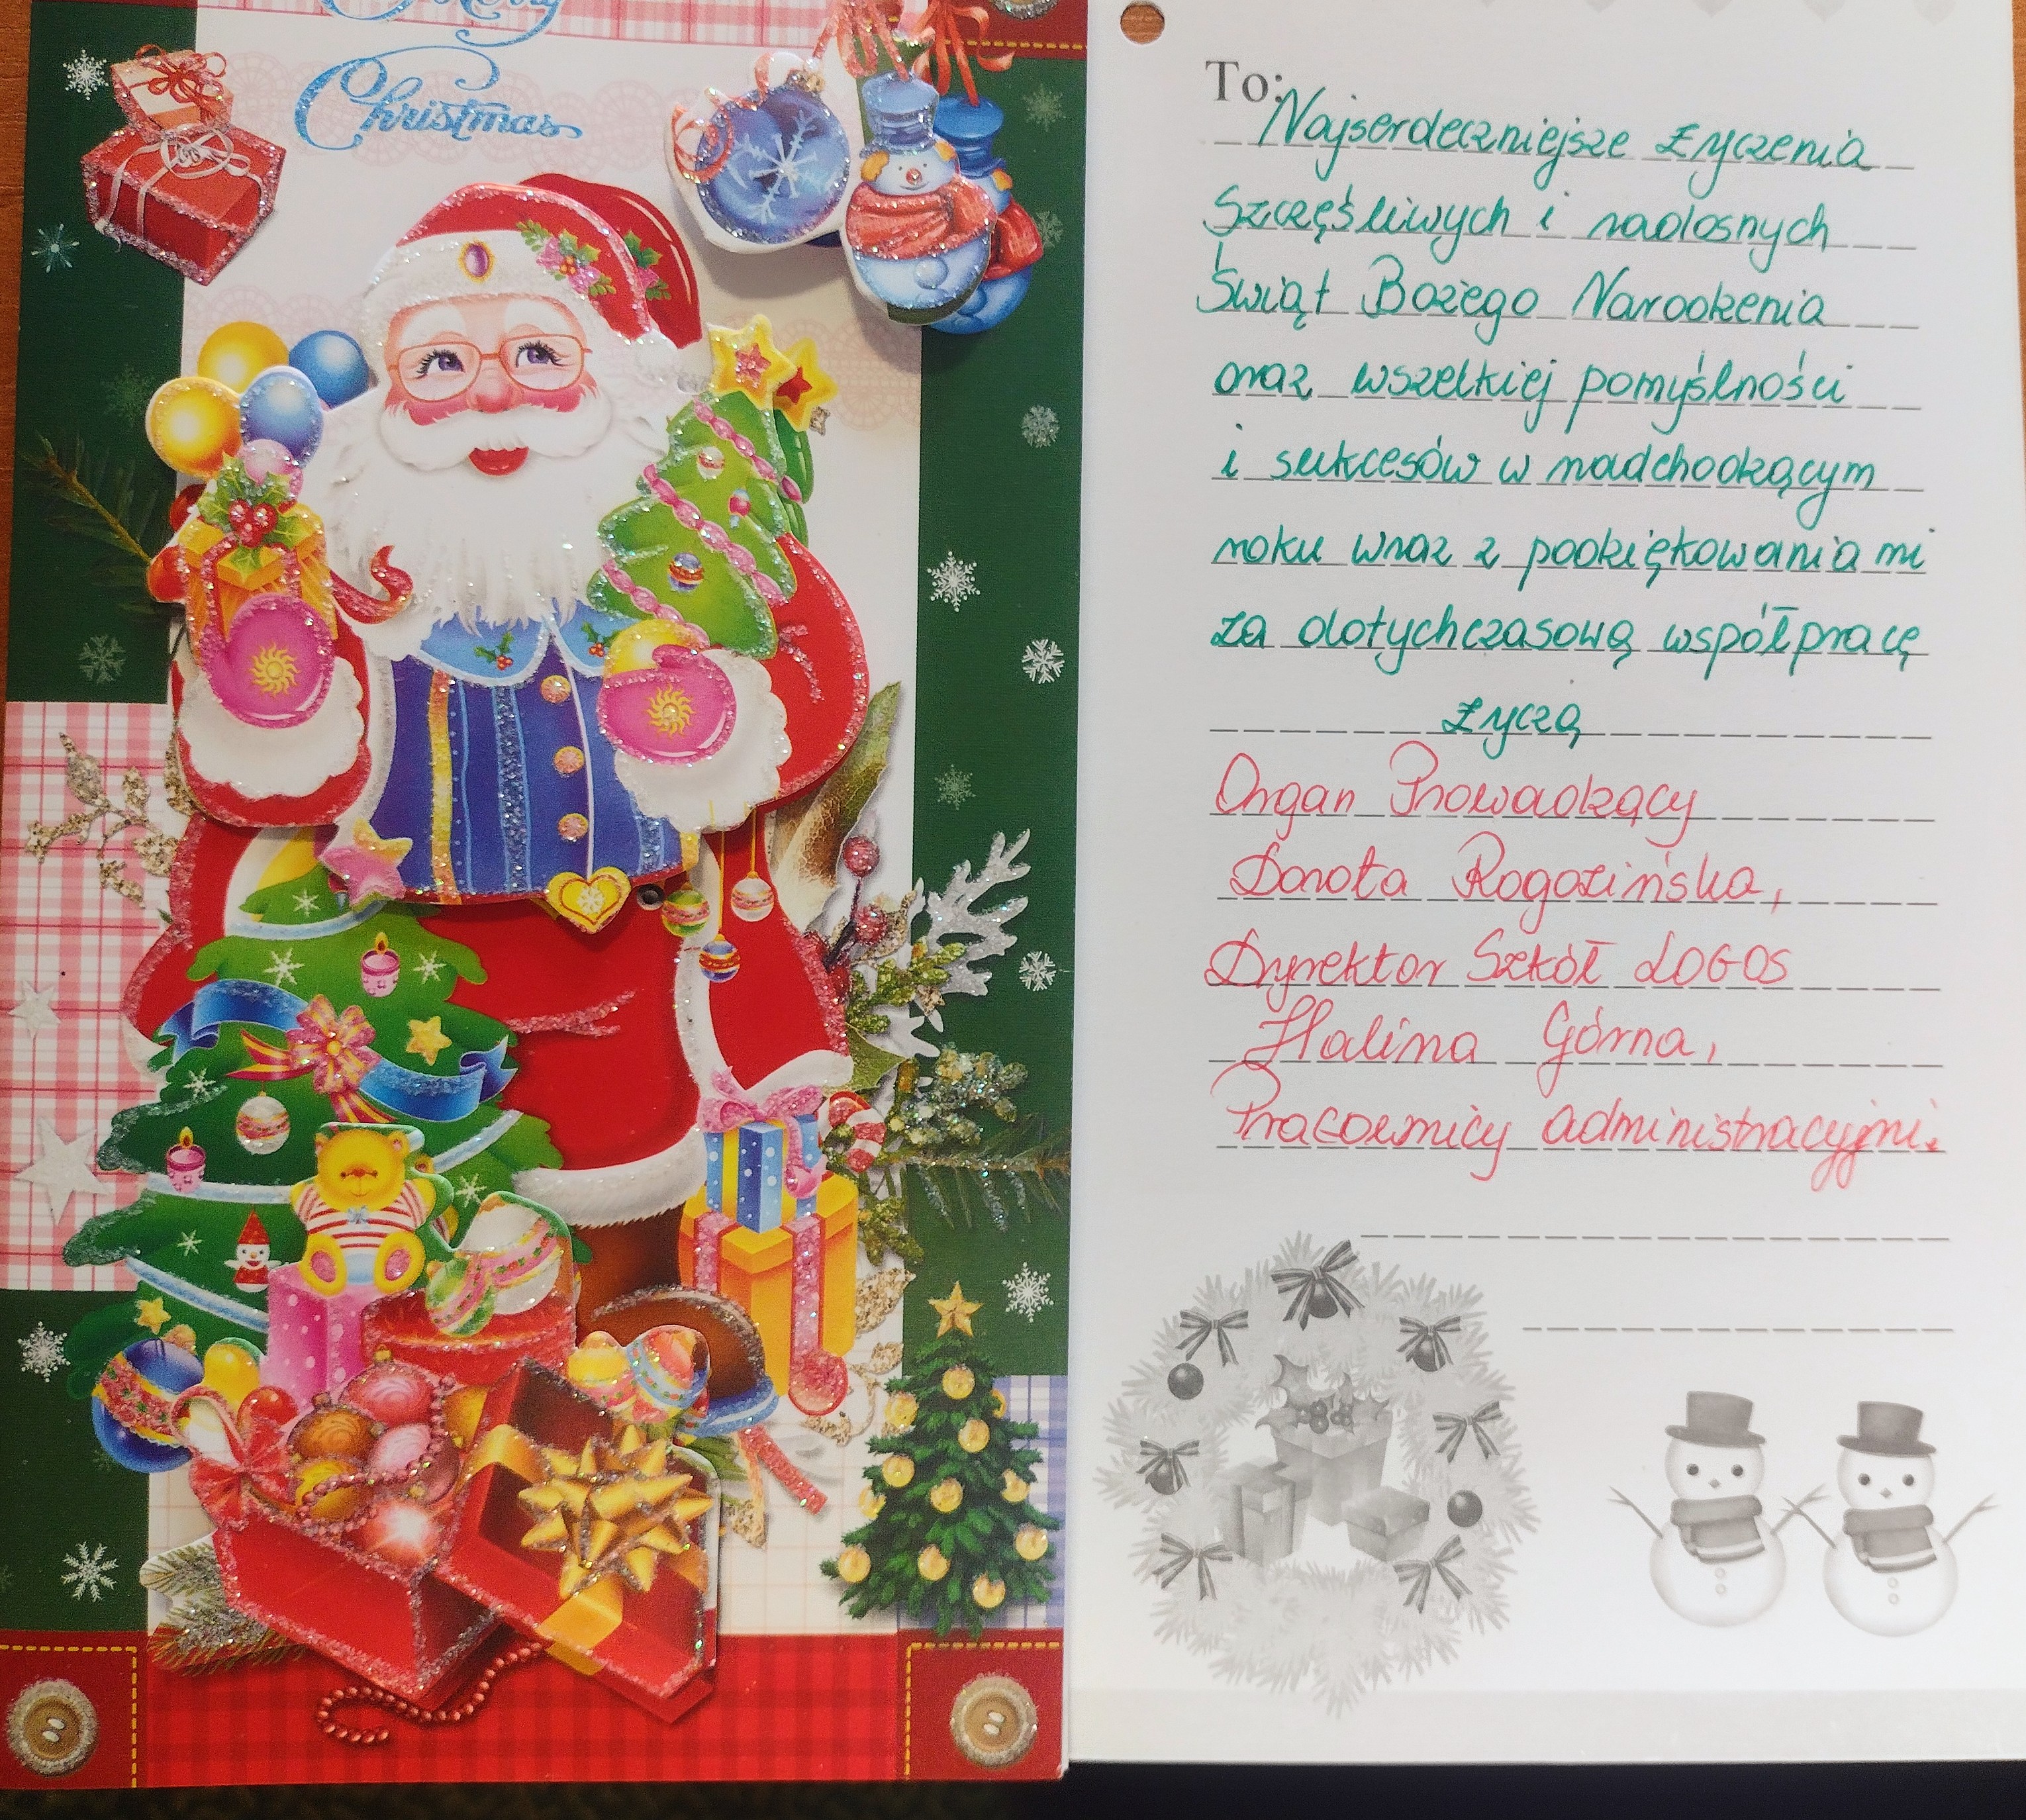 Merry
Christmas
To:
Najserdeczniejsze życzenia
Szczęśliwych i radosnych
Świąt Bożego Narodzenia
oraz wszelkiej pomyślności
i sukcesów w nadchodzącym
roku wraz z podziękowaniami
za dotychczasową współpracę
życzą
Organ Prowadzący
Dorota Rogozińska,
Dyrektor Szkół LOGOS
Halina Górna,
Pracownicy administracyjni.